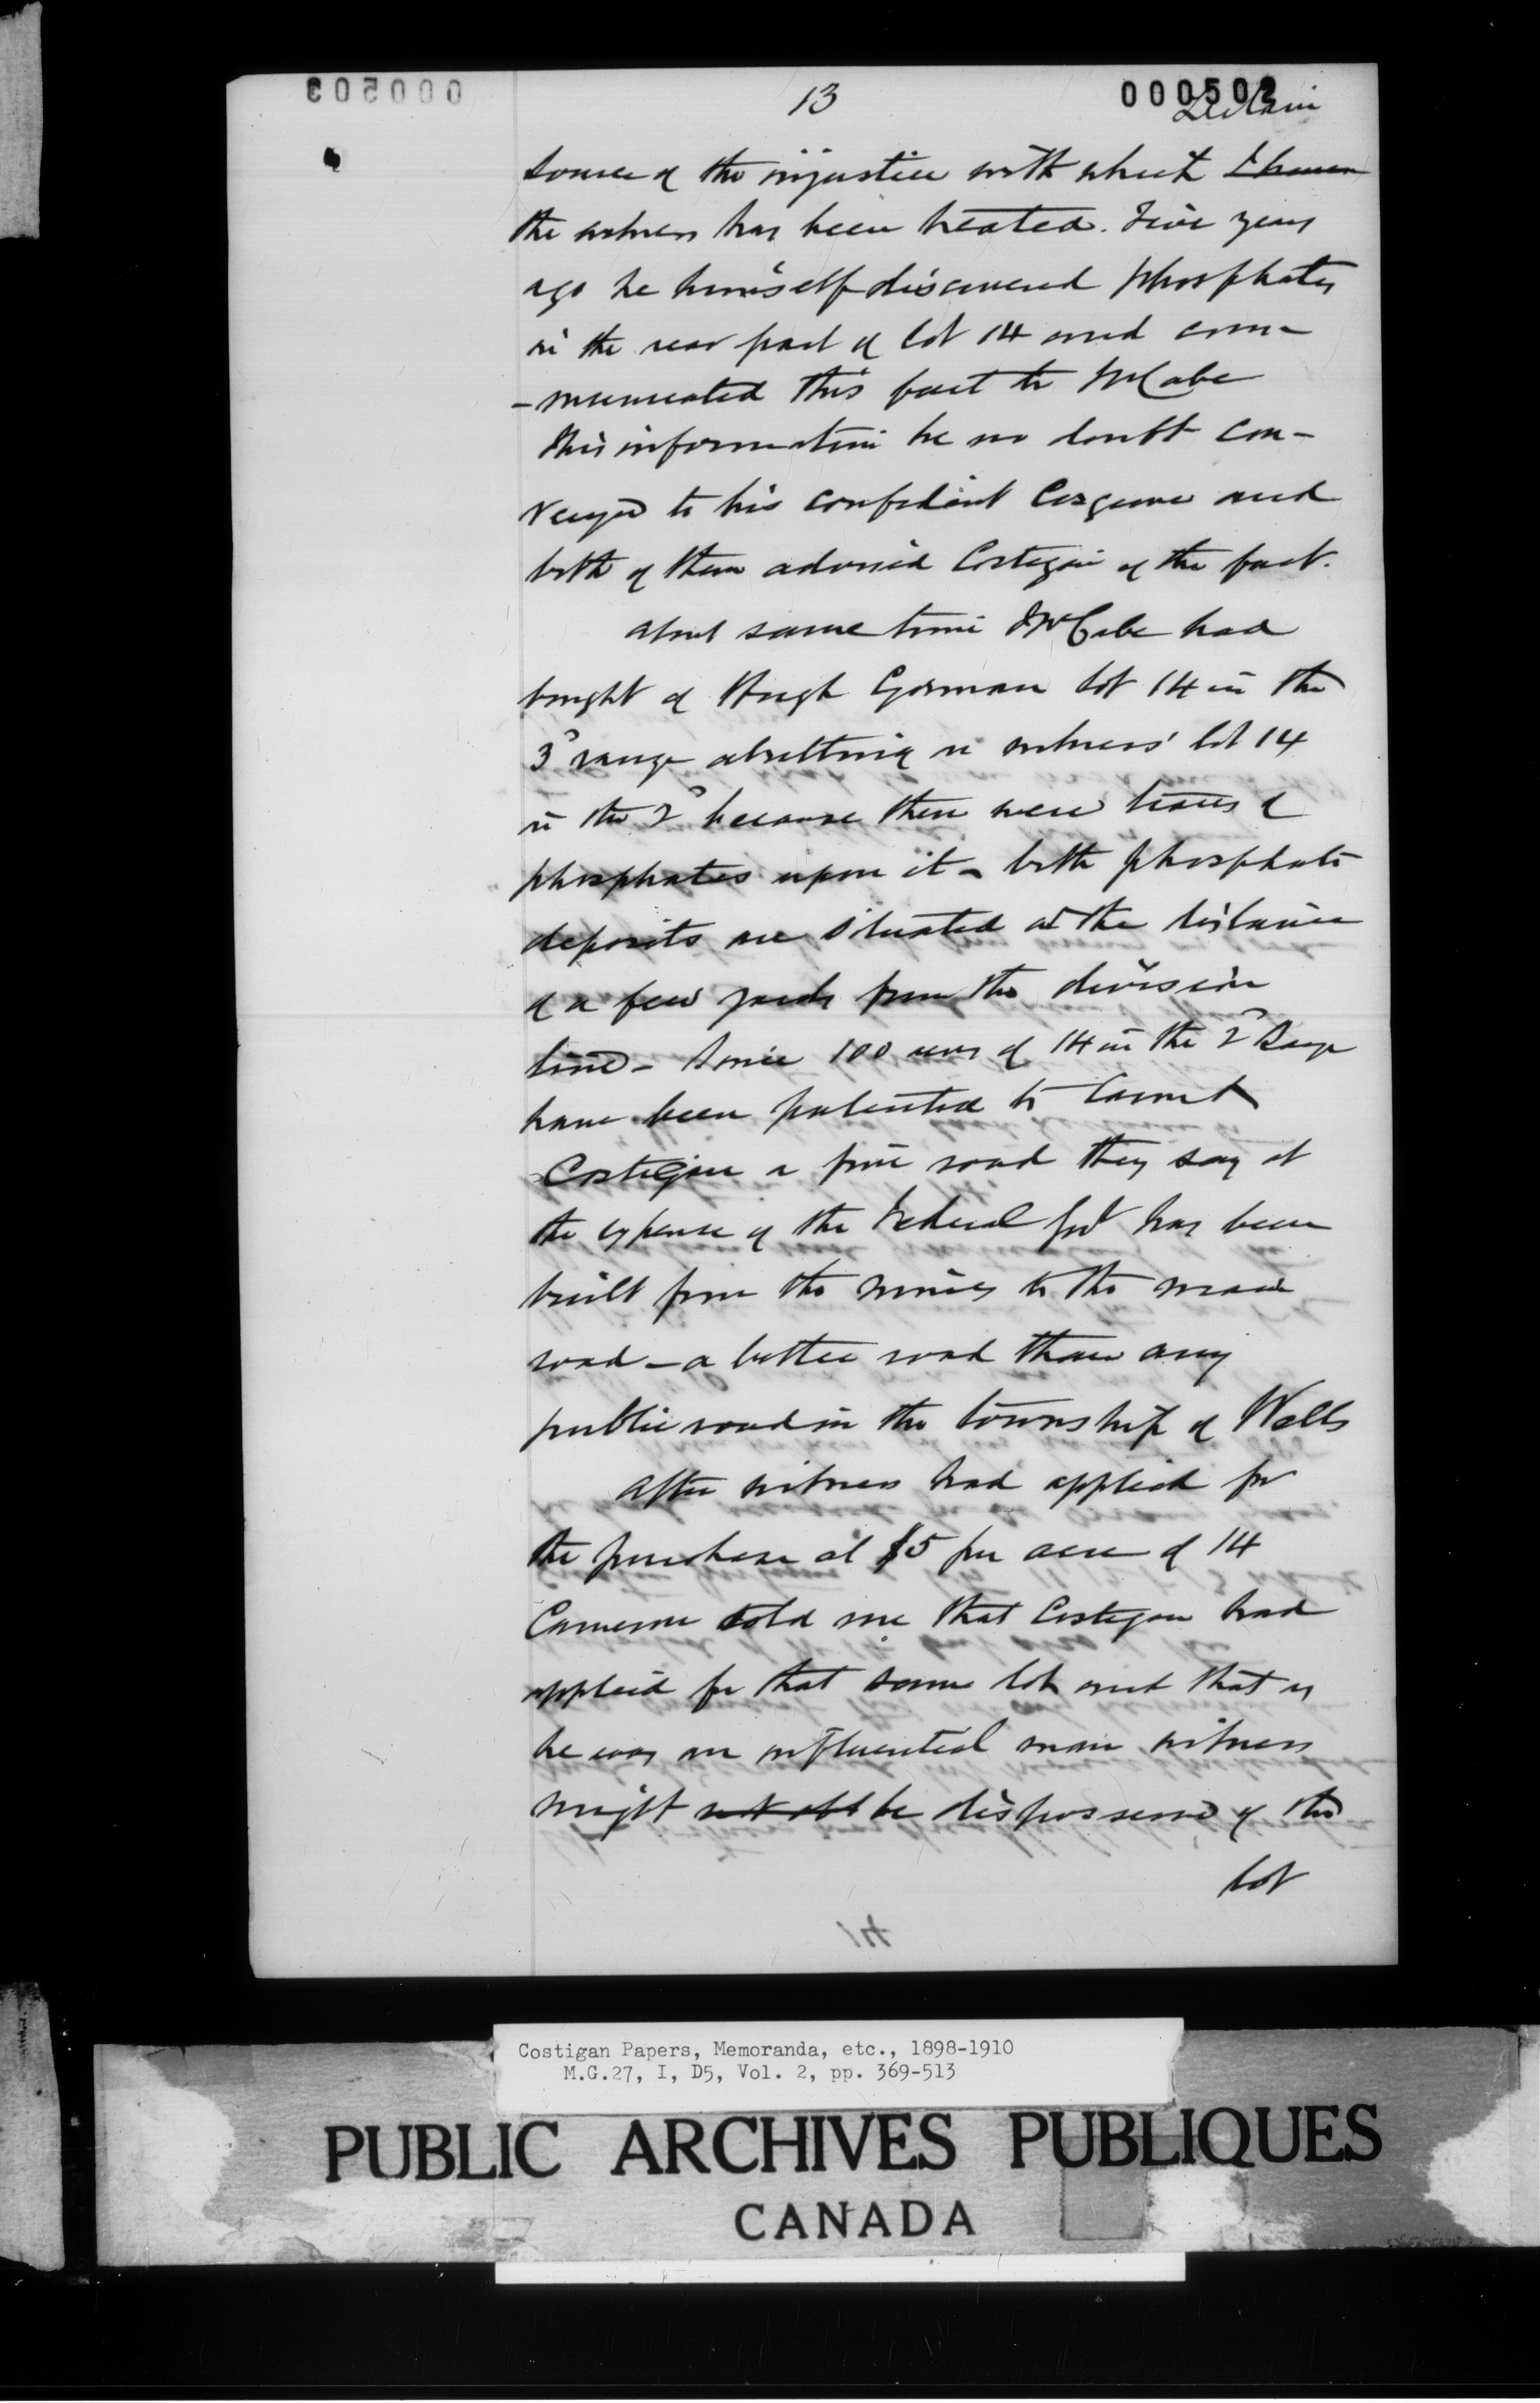 13
000502
000503
source of the injustice with which I have
the witness has been treated. Five years
ago he himself discovered phosphates
in the rear part of lot 14 and com-
-municated this fact to McCabe
this information he no doubt con-
veyed to his confidant Cosgrove and
both of them advised Costigan of the fact.
about same time McCabe had
bought of Hugh Gorman lot 14 in the
3d range abutting on witness' lot 14
in the 2d because there were traces of
phosphates upon it - both phosphate
deposits are situated at the distance
of a few yards from the division
line - Since 100 acres of 14 in the 2d Range
have been patented to
Costigan a fine road they say at
the expense of the Federal Govt has been
built from the mines to the main
road - a better road than any
public road in the township of Wells
After witness had applied for
the purchase at $5 per acre of 14
Cameron told me that Costigan had
applied for that same lot and that as
he was an influential man witness
might be dispossessed of the
lot
14
Costigan Papers, Memoranda, etc., 1898-1910
M.G.27, I, D5, Vol. 2, pp. 369-513
PUBLIC ARCHIVES PUBLIQUES
CANADA